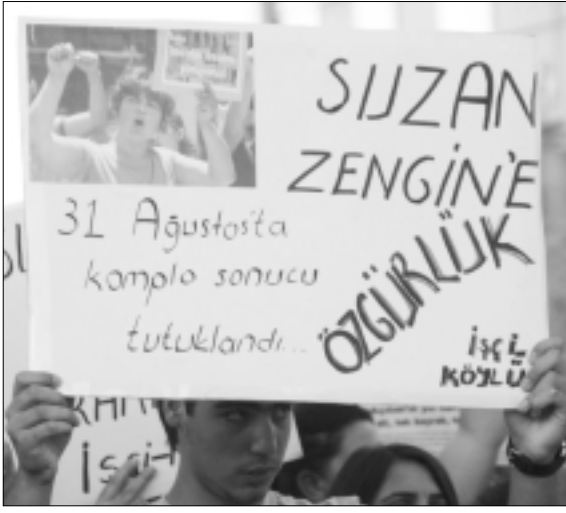 SUZAN
ZENGİN'E
ÖZGÜRLÜK
31 Ağustos'ta
komplo sonucu
tutuklandı...
İŞÇİ
KÖYLÜ
İşçi